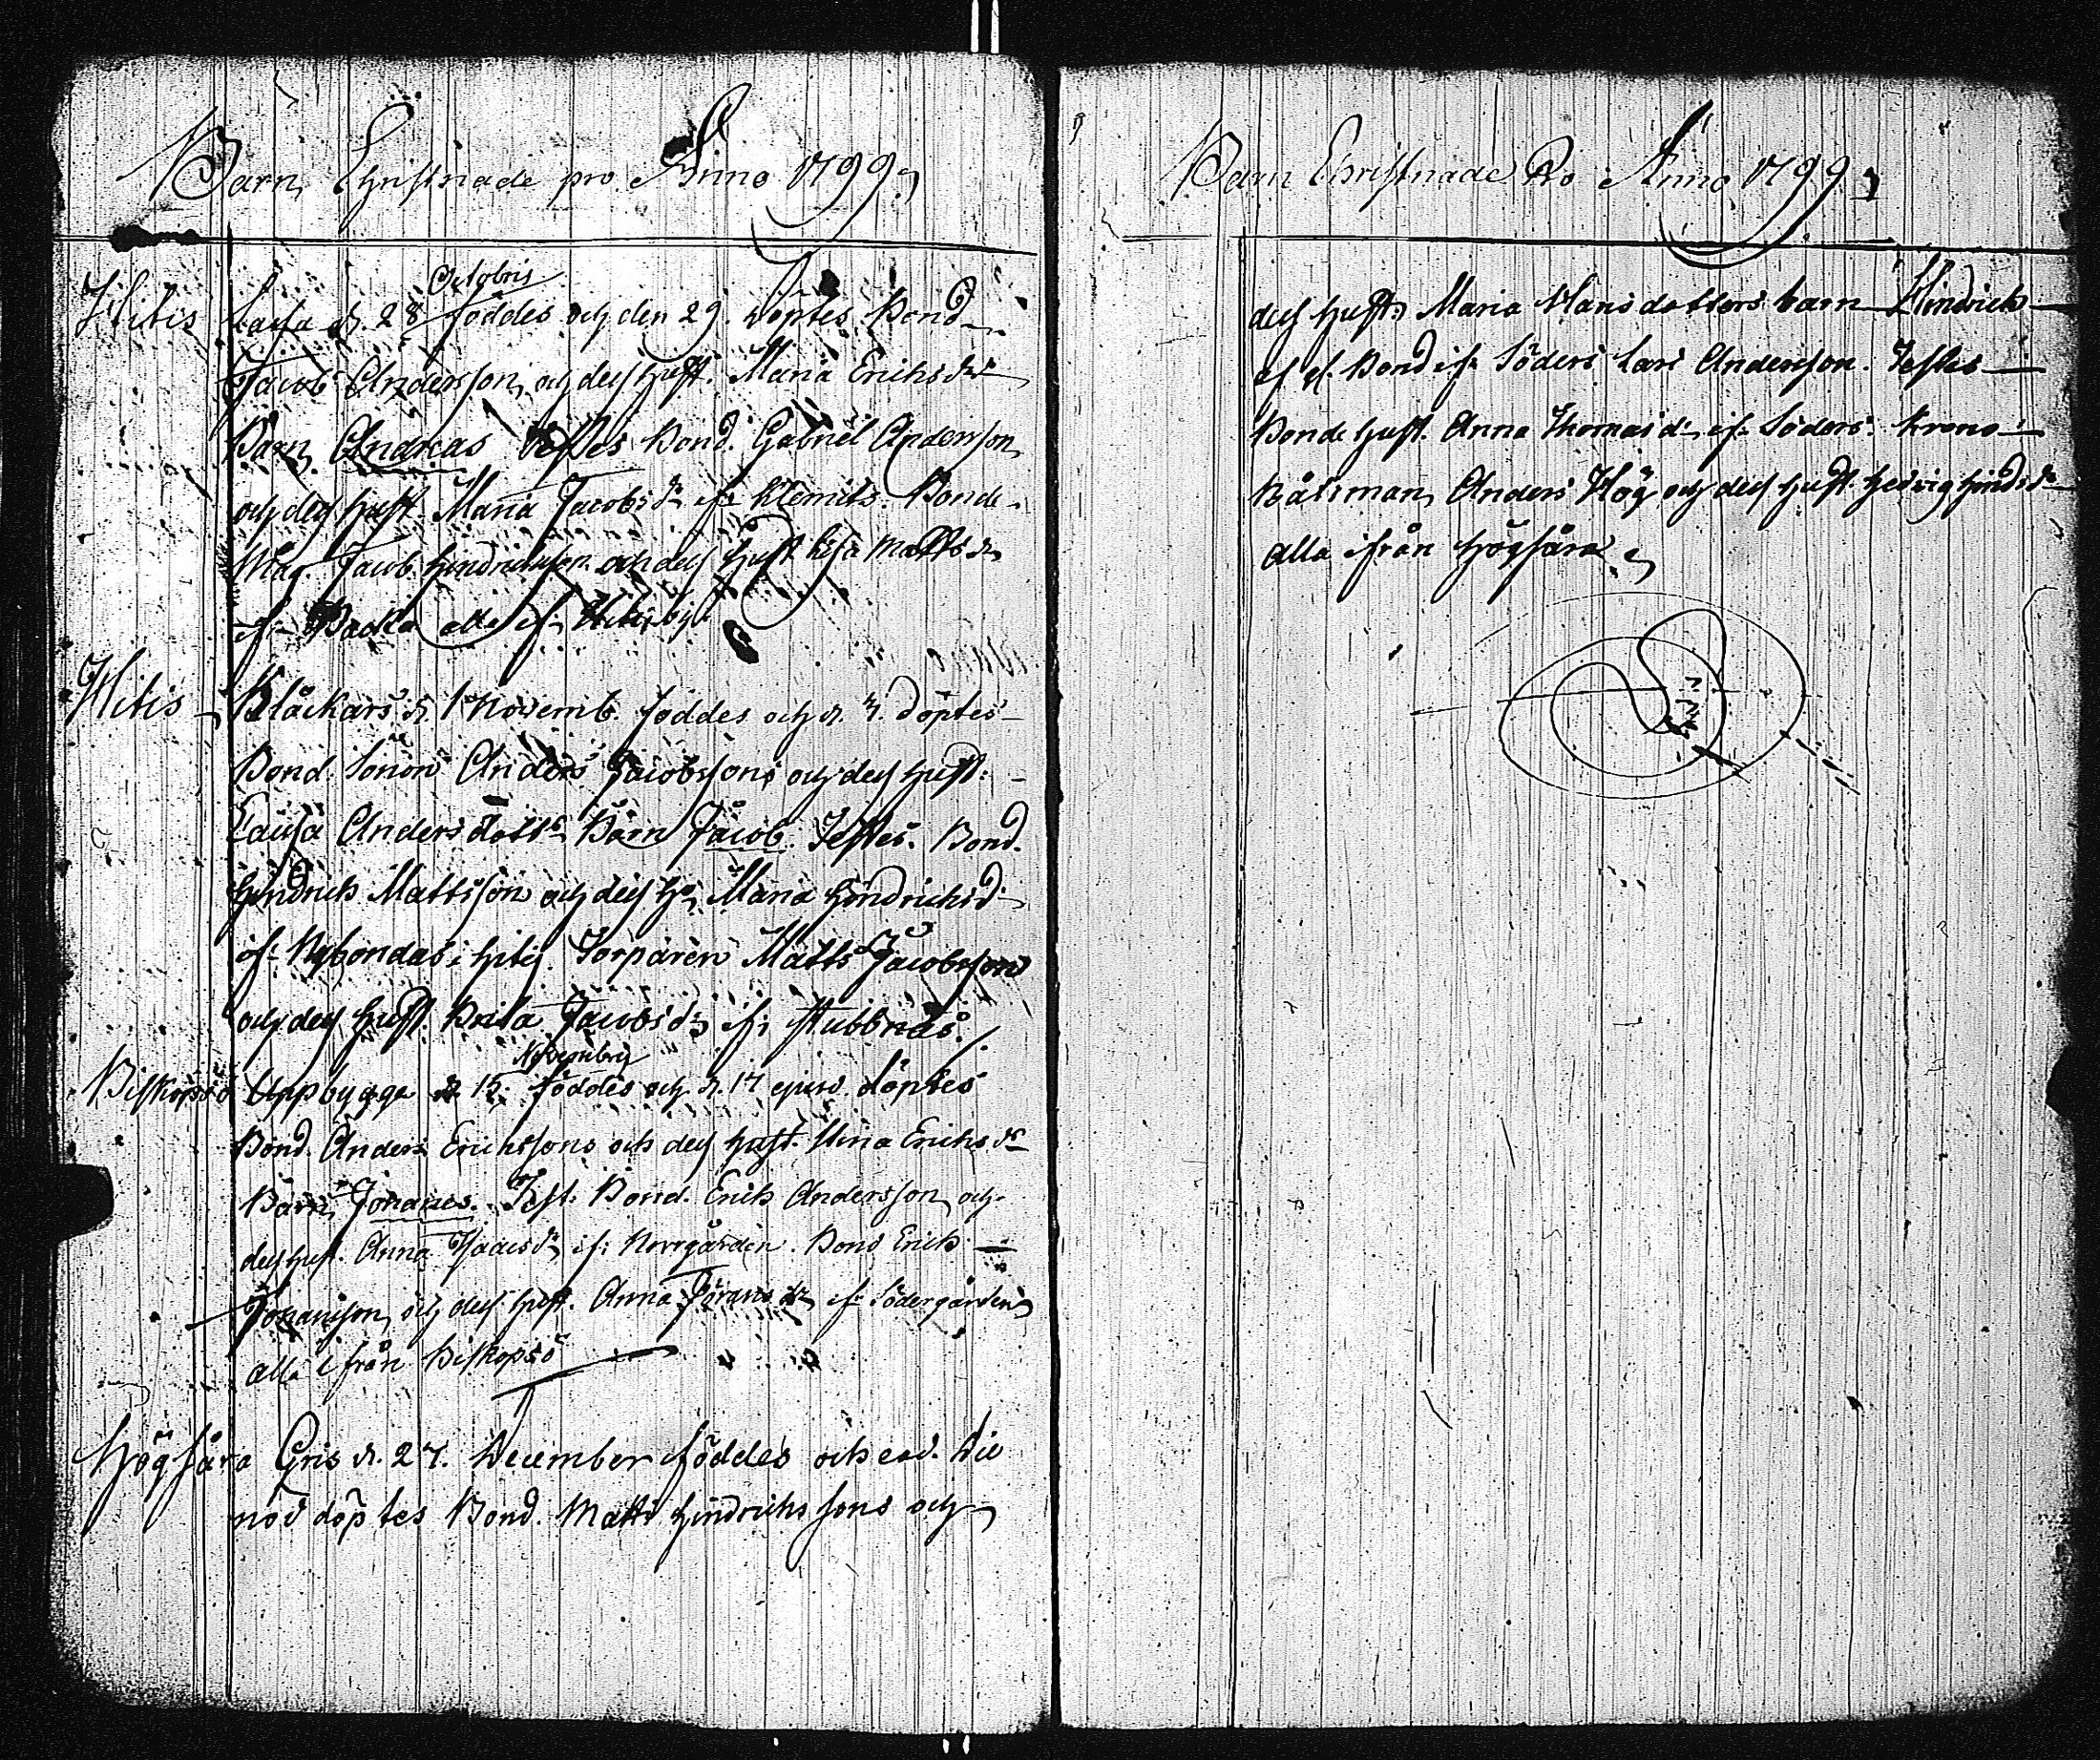 Barn Christnade pro Anno 1799
Hitis Lassa d. 28 Octobris föddes och den 29. döptes Bond
Jacob Andersson och dess hust. Maria Erichs dr
Barn Andreas Testes Bond. Gabriel Andersson
och dess hust. Maria Jacobs dr ifr Klemits. Bonde
Måg Jacob Hindrichsson och dess hust Lisa Matts dr
ifr Backa alla ifr Hitis by
Hitis Klåckars d. 1 Novemb. föddes och d. 3. döptes
Bond. Sonen Anders Jacobssons och dess hust:
Caisa Anders dottr Barn Jacob. Testes. Bond.
Hindrich Mattsson och dess h. Maria Hindrichs d
ifr Nybondas i Hitis. Torparen Matts Jacobsson
och dess hust. Brita Jacobs dr ifr Stubbnäs.
Biskopsö Uppbygge d 15. Novembris föddes och d. 17 ejusd. döptes
Bond. Anders Erichssons och dess hust. Stina Erichs dr
Barn Johanes. Test. Bond. Erich Andersson och
dess hust. Anna Isaacs dr ifr Norrgården. Bond Erich
Johansson och dess hust. Anna Jörans dr ifr Södergården
alla ifrån Biskopsö
Högsåra Gris d. 27. December föddes och ead. die
nöd döptes Bond. Matts Hindrichssons och
Barn Christnade Pro Anno 1799
dess hust: Maria Hans dotters barn Hindrich
af Bond ifr Söders Lars Andersson. Testes
Bonde hust. Anna Thomas d ifr Söders. Krono
Båtsman Anders Hög och dess hust. Hedvig Hinds dr
alla ifrån Högsåra